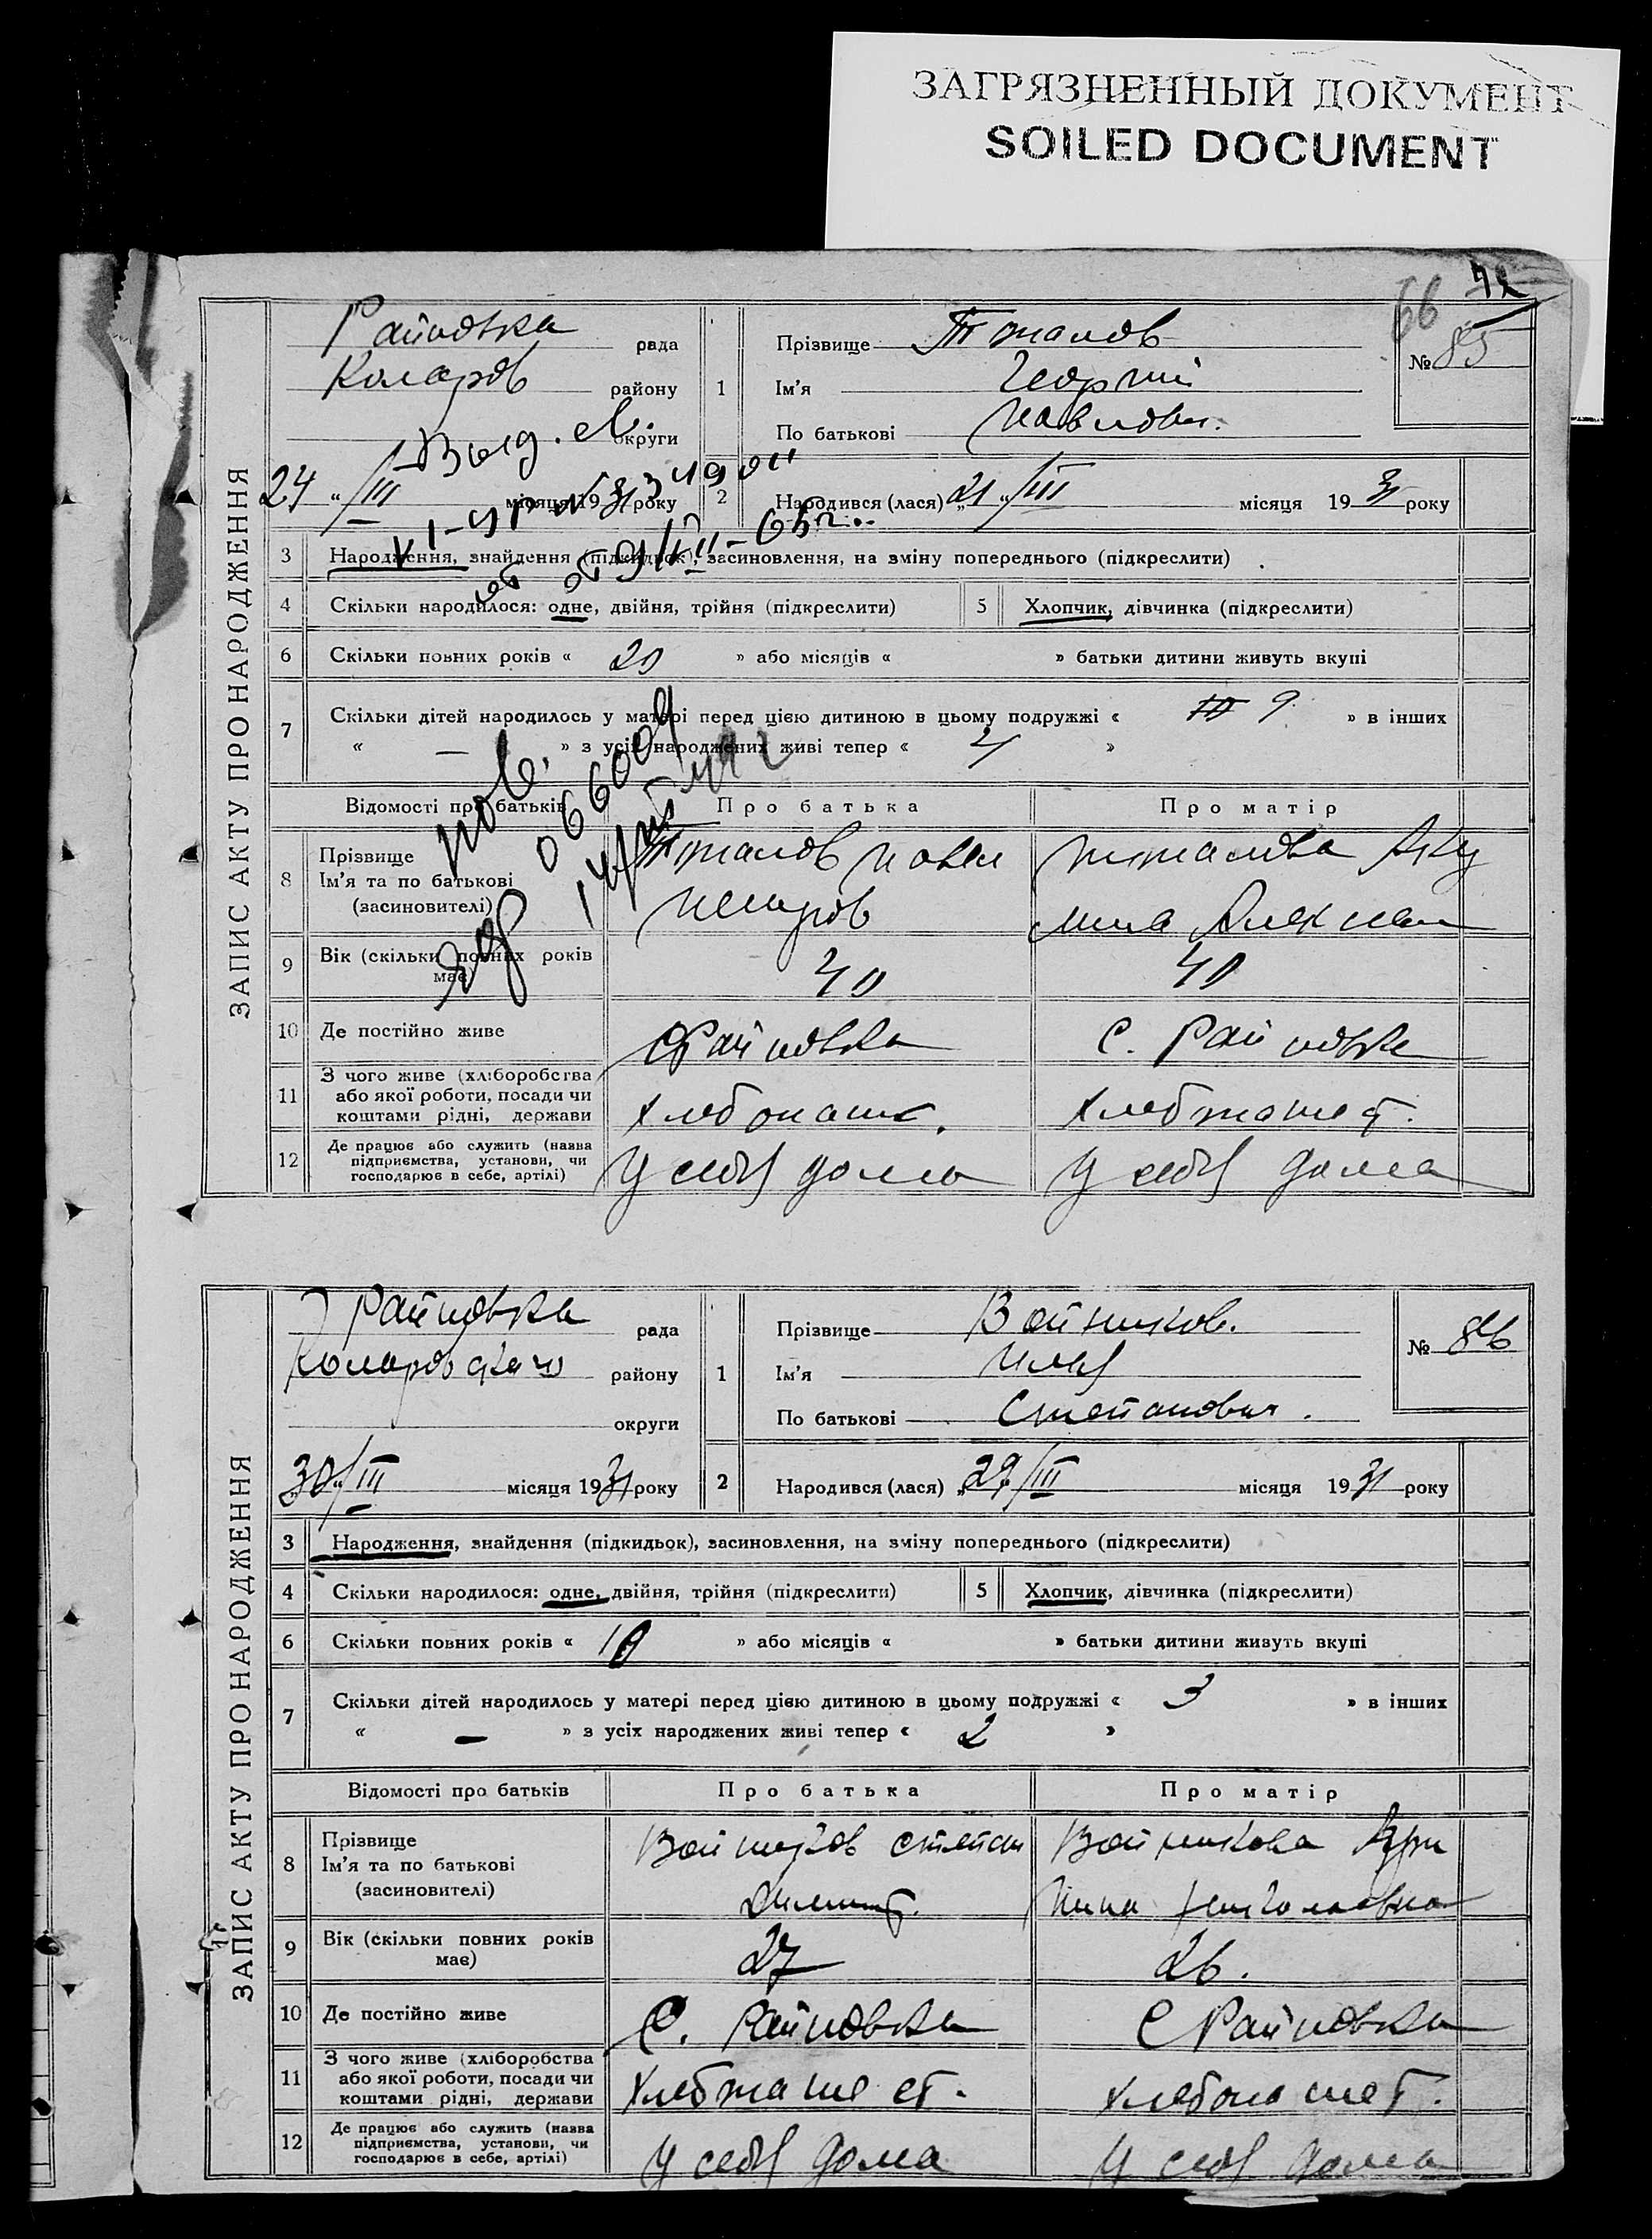 ЗАГРЯЗНЕННЫЙ ДОКУМЕНТ
SOILED DOCUMENT
66
ЗАПИС АКТУ ПРО НАРОДЖЕННЯ
Райновка рада
Коларов району
округи
24 „/III місяця 1931 року
№ 85
1 Прізвище
Ім'я Георгий
По батькові Павлович.
2 Народився (лася) „21„/III місяця 1931 року
3 Народження, знайдення (підкидьок), засиновлення, на зміну попереднього (підкреслити)
4 Скільки народилося: одне, двійня, трійня (підкреслити)
5 Хлопчик, дівчинка (підкреслити)
6 Скільки повних років « 20 » або місяців « » батьки дитини живуть вкупі
7 Скільки дітей народилось у матері перед цією дитиною в цьому подружжі « 9 » в інших
« — » з усіх народжених живі тепер « 4 »
Відомості про батьків
Про батька
Про матір
8 Прізвище
Ім'я та по батькові
(засиновителі)
Павел
9 Вік (скільки повних років
має)
40
40
10 Де постійно живе
С Райновка
С. Райновка
11 З чого живе (хліборобства
або якої роботи, посади чи
коштами рідні, держави
Хлебопаш.
Хлебопашет.
12 Де працює або служить (назва
підприємства, установи, чи
господарює в себе, артілі)
У себя дома
У себя дома
ЗАПИС АКТУ ПРО НАРОДЖЕННЯ
Райновка рада
Коларовского району
округи
„30„/III місяця 1931 року
№ 86
1 Прізвище Войников.
Ім'я Илья
По батькові Степанович.
2 Народився (лася) „29„/III місяця 1931 року
3 Народження, знайдення (підкидьок), засиновлення, на зміну попереднього (підкреслити)
4 Скільки народилося: одне, двійня, трійня (підкреслити)
5 Хлопчик, дівчинка (підкреслити)
6 Скільки повних років « » або місяців « » батьки дитини живуть вкупі
7 Скільки дітей народилось у матері перед цією дитиною в цьому подружжі « 3 » в інших
« — » з усіх народжених живі тепер « 2 »
Відомості про батьків
Про батька
Про матір
8 Прізвище
Ім'я та по батькові
(засиновителі)
Войников Степан
Войникова
Николаевна
9 Вік (скільки повних років
має)
27
26.
10 Де постійно живе
С. Райновка
С Райновка
11 З чого живе (хліборобства
або якої роботи, посади чи
коштами рідні, держави
Хлебопашет.
Хлебопашет.
12 Де працює або служить (назва
підприємства, установи, чи
господарює в себе, артілі)
У себя дома
У себя дома